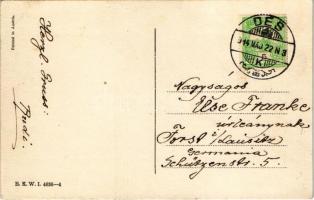 Printed in Austria.
Herzl. Gruss!
Rudi.
B. K. W. I. 4636-4
DÉS
914 MÁJ 22 N 3
Nagyságos
Ilse Franke
úrleánynak
Forst i/Lausitz
Germania
Schützenstr. 5.